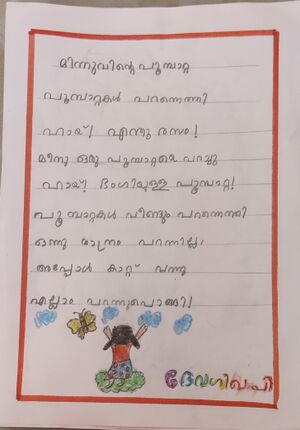 മിന്നുവിന്റെ പൂമ്പാറ്റ
പൂമ്പാറ്റകൾ പറന്നെത്തി
ഹായ്! എന്തു രസം!
മീനു ഒരു പൂമ്പാറ്റയെ വരച്ചു
ഹായ്! ഭംഗിയുള്ള പൂമ്പാറ്റ!
പൂമ്പാറ്റകൾ വീണ്ടും പറന്നെത്തി
ഒന്നു മാത്രം പറന്നില്ല,
അപ്പോൾ കാറ്റ് വന്നു
എല്ലാം പറന്നുപൊങ്ങി!
ദേവശിഖ പി